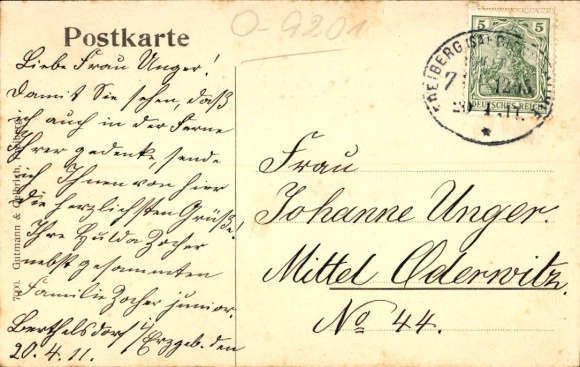 O-9201
Postkarte
Liebe Frau Unger!
Damit Sie sehen, daß
ich auch in der Ferne
Ihrer gedenke, sende
ich Ihnen von hier
die herzlichsten Grüße!
Ihre Hulda Zocher
nebst gesammten
Familie Zocher junior.
Berthelsdorf i/Erzgeb. den
20.4.11.
5 5
DEUTSCHES REICH
FREIBERG (SACHSEN)
7
12-1
20 4 11
*
Frau
Johanne Unger.
Mittel Oderwitz.
No 44.
Gutmann &